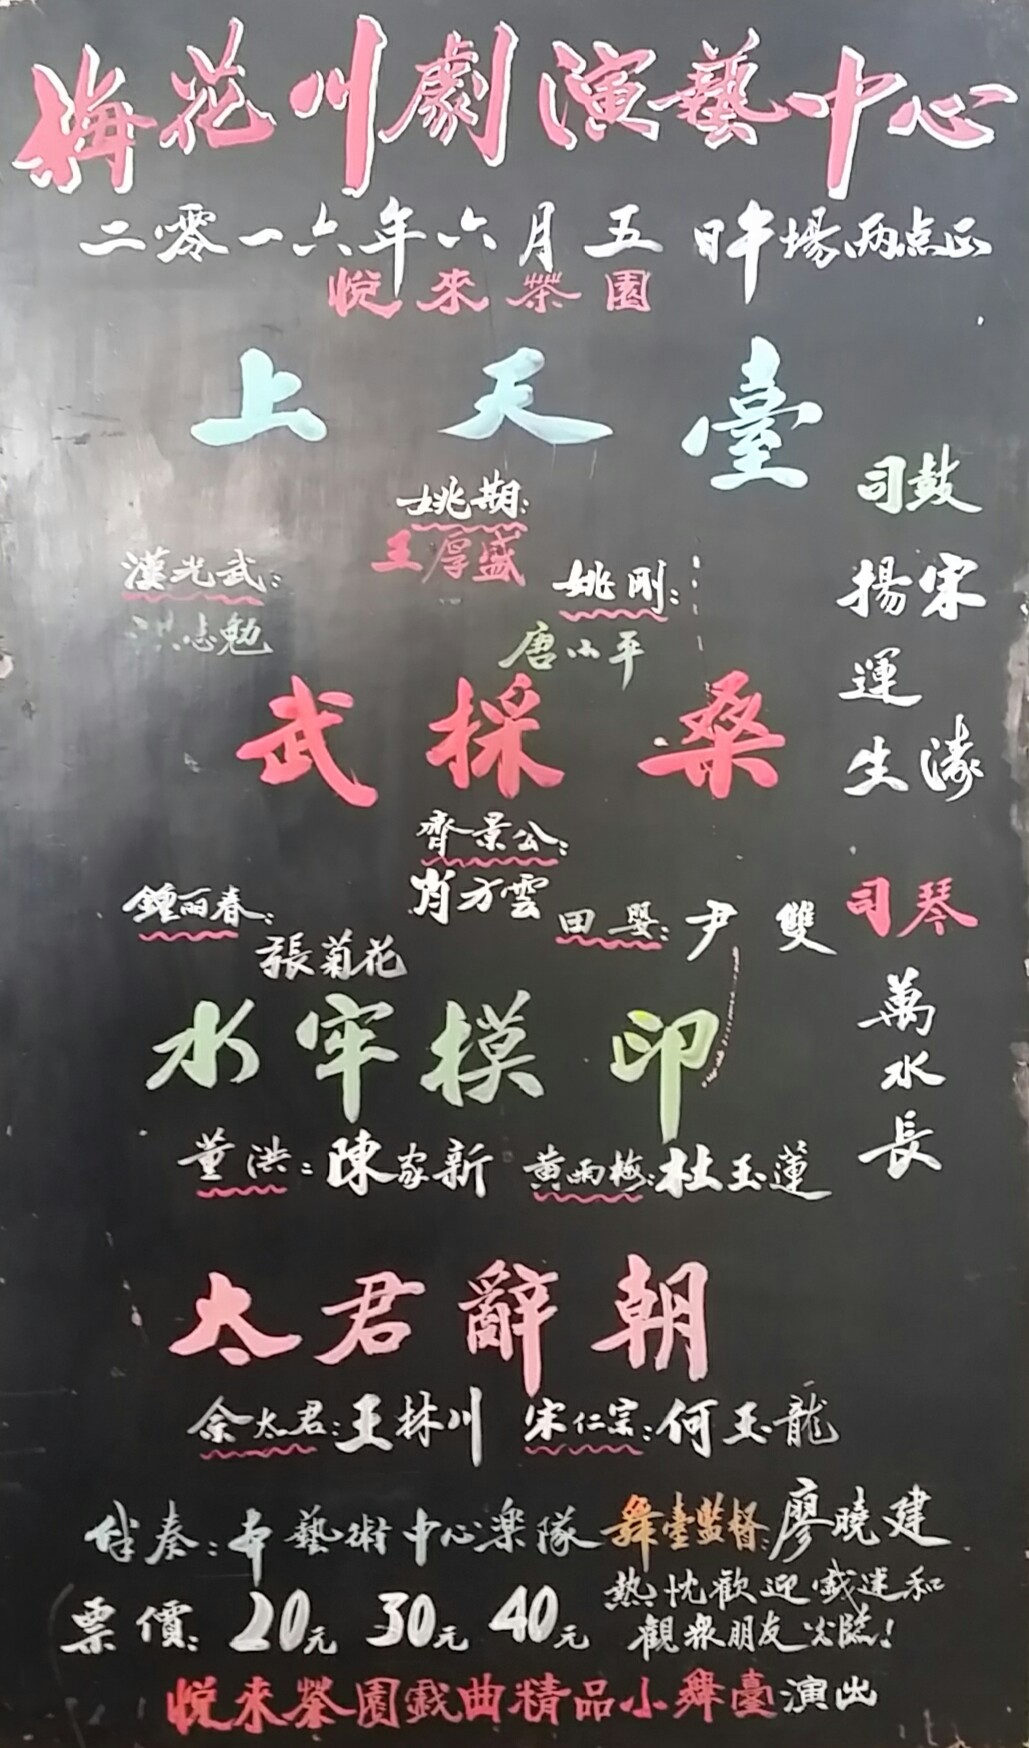 梅花川劇演藝中心
二零一六年六月五日午場两点正
悦來茶園
上天臺
姚期：
王厚盛
漢光武：
洪志勉
姚剛：
唐小平
司鼓
揚運生
宋濤
武採桑
齊景公：
肖方雲
鍾丽春：
張菊花
田嬰：尹雙
司琴
萬水長
水牢摸印
董洪：陳家新 黄雨梅：杜玉蓮
太君辭朝
佘太君：王林川 宋仁宗：何玉龍
伴奏：本藝術中心楽隊
舞臺監督：廖曉建
票價：20元 30元 40元
熱忱歡迎戲迷和
觀眾朋友光臨！
悦来茶園戲曲精品小舞臺演出